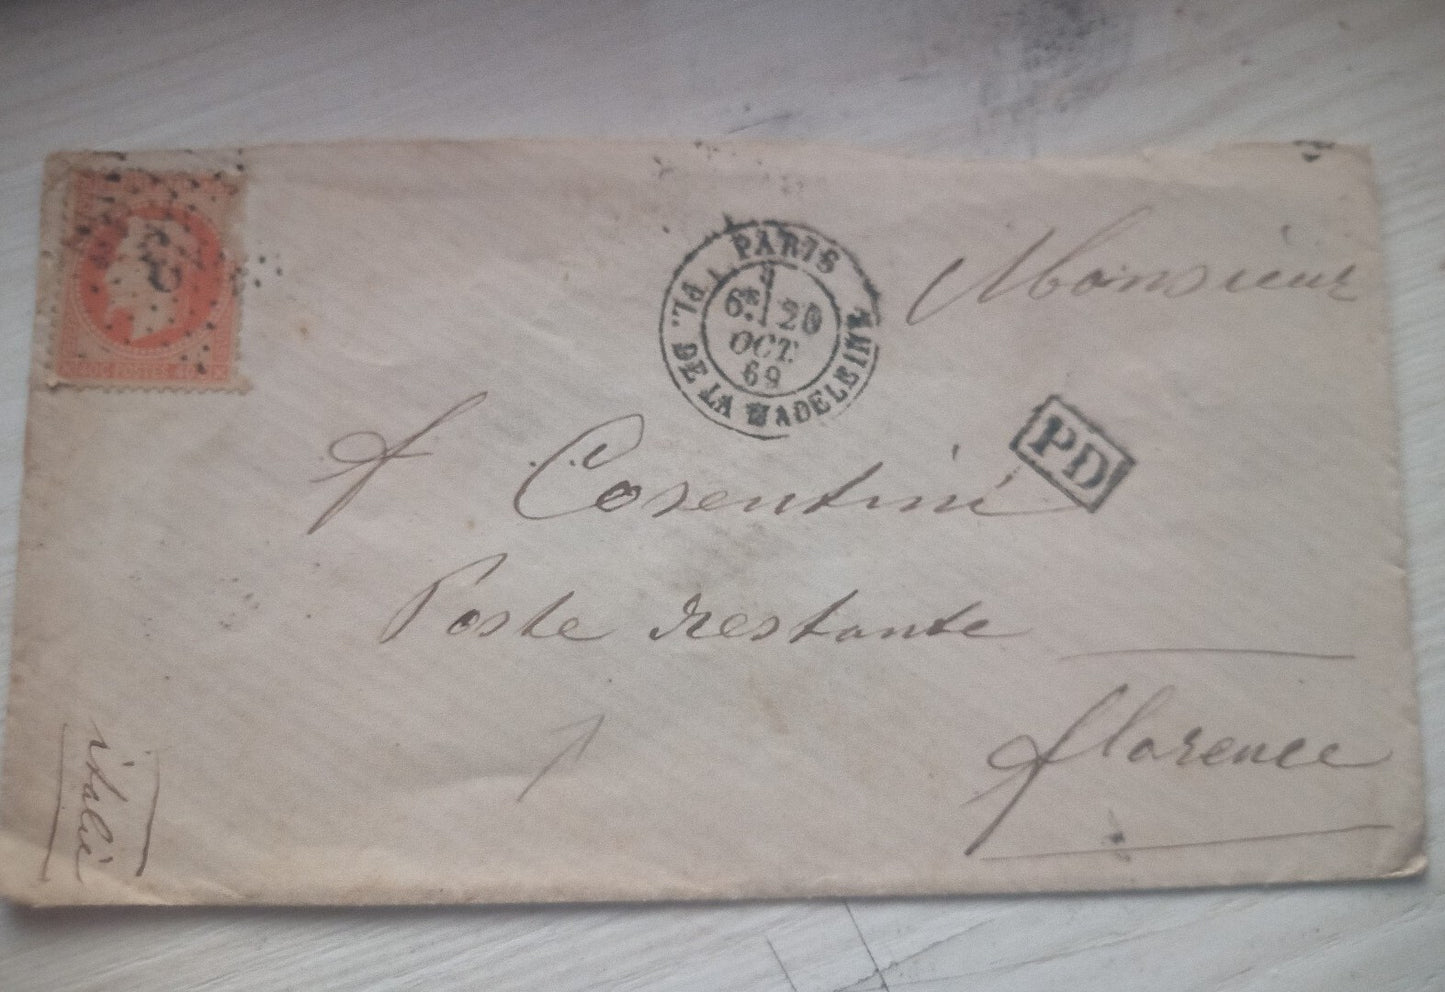 PARIS
PL. DE LA MADELEINE
6E 20
OCT.
69
Monsieur
PD
A Cosentini
Poste restante
Florence
italie
40C POSTES 40C